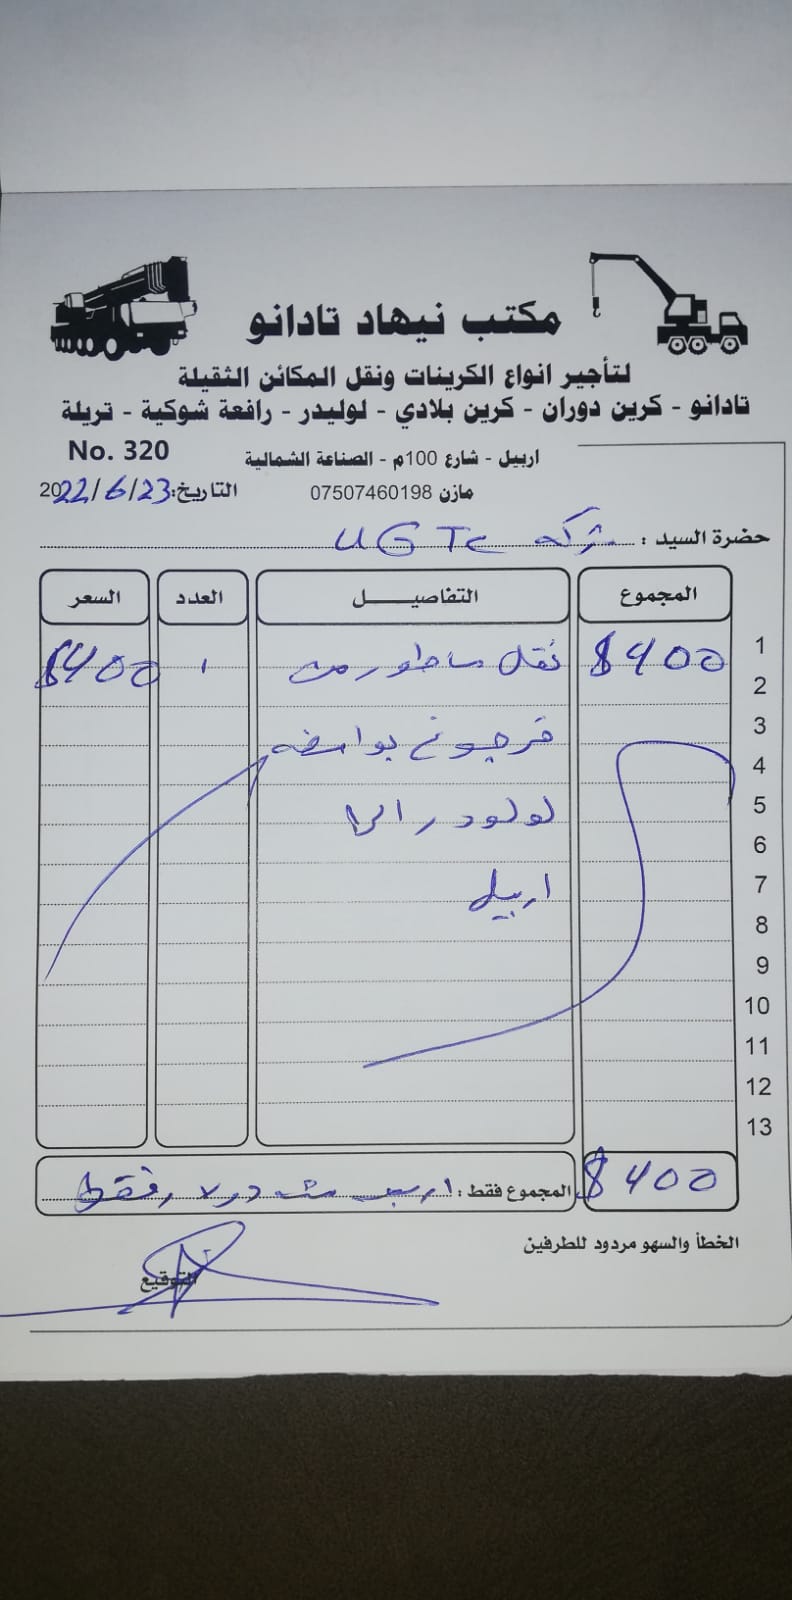 مكتب نيهاد تادانو
لتأجير انواع الكرينات ونقل المكائن الثقيلة
تادانو - كرين دوران - كرين بلادي - لوليدر - رافعة شوكية - تريلة
No. 320
اربيل - شارع 100م - الصناعة الشمالية
التاريخ: 2022/6/23
مازن 07507460198
حضرة السيد : شركة UGTC
المجموع التفاصيـــــل العدد السعر
1
$400 نقل ماطور من ١ $400
2
3
بواسطه
4
5
لولودر الى
6
7
اربيل
8
9
10
11
12
13
$400 المجموع فقط : اربع مئه دولار فقط
الخطأ والسهو مردود للطرفين
التوقيع